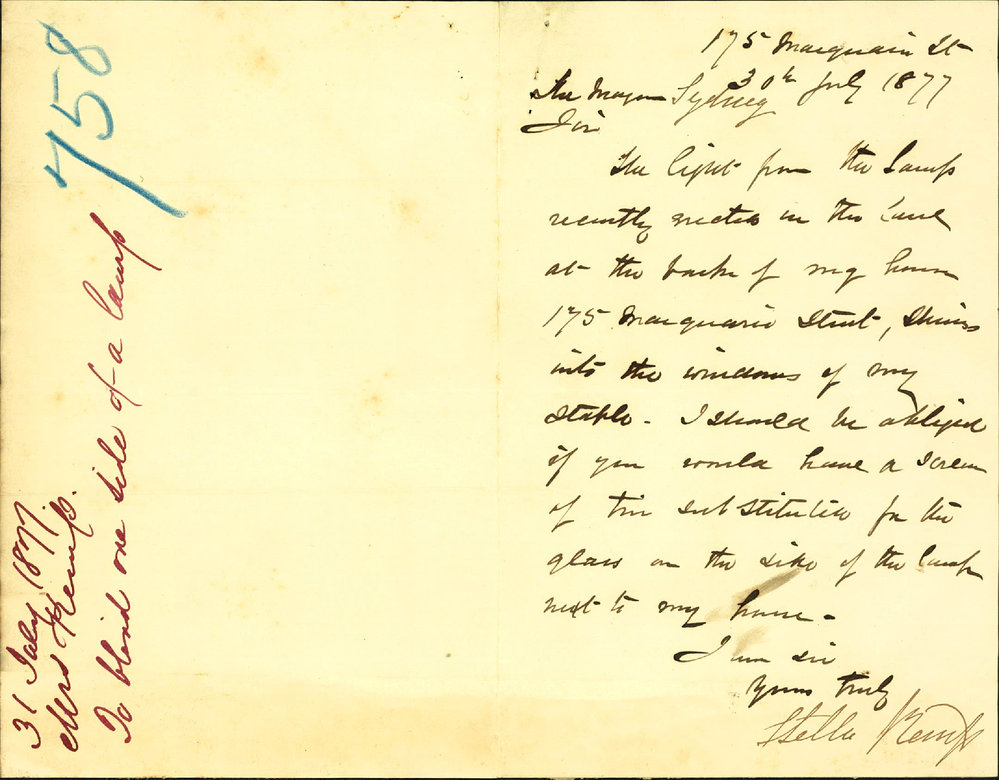 758
31 July 1877.
Mrs Kemp.
To blind one side of a lamp
175 Macquarie St
The Mayor Sydney 30th July 1877
Sir
The light from the Lamp
recently erected in the Lane
at the back of my house
175 Macquarie Street, Shines
into the windows of my
Stable - I should be obliged
if you would have a screen
of tin substituted for the
glass on the side of the lamp
next to my house -
I am sir
Yours truly
Stella Kemp